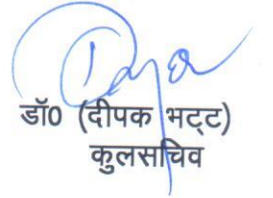 डॉ0 (दीपक भट्ट)
कुलसचिव